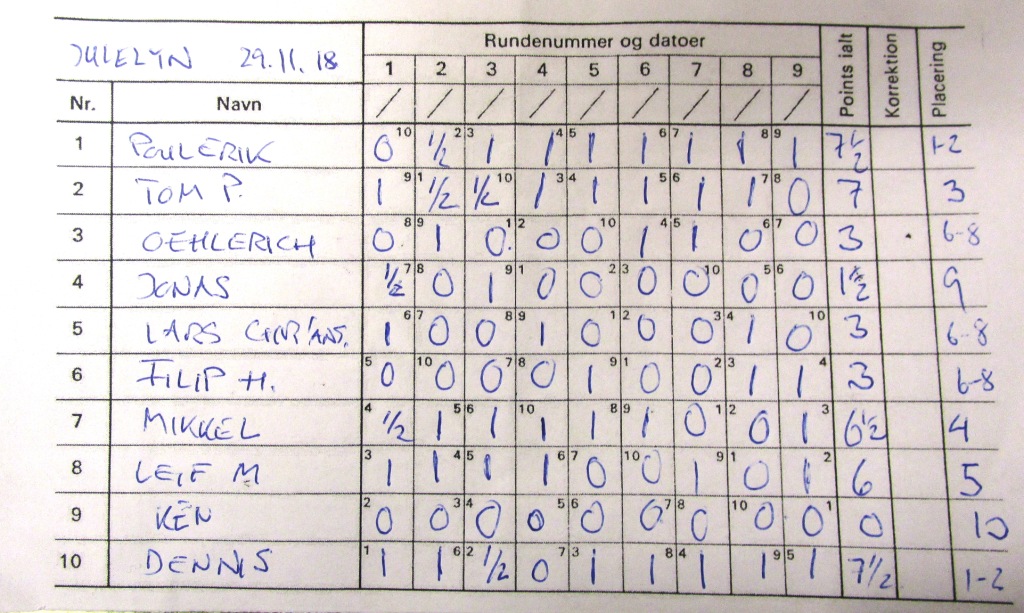 JULELYN 29.11.18 Rundenummer og datoer Points ialt Korrektion Placering
1 2 3 4 5 6 7 8 9
Nr. Navn / / / / / / / / /
1 POUL ERIK 0 10 ½ 2 3 1 1 4 5 1 1 6 7 1 1 8 9 1 7½ 1-2
2 TOM P. 1 9 1 ½ ½ 10 1 3 4 1 1 5 6 1 1 7 8 0 7 3
3 OEHLERICH 0 8 9 1 0 1 2 0 0 10 1 4 5 1 0 6 7 0 3 6-8
4 JONAS ½ 7 8 0 1 9 1 0 0 2 3 0 0 10 0 5 6 0 1½ 9
5 LARS 1 6 7 0 0 8 9 1 0 1 2 0 0 3 4 1 0 10 3 6-8
6 FILIP H. 5 0 10 0 0 7 8 0 1 9 1 0 0 2 3 1 1 4 3 6-8
7 MIKKEL 4 ½ 1 5 6 1 10 1 1 8 9 1 0 1 2 0 1 3 6½ 4
8 LEIF M 3 1 1 4 5 1 1 6 7 0 10 0 1 9 1 0 1 2 6 5
9 KEN 2 0 0 3 4 0 0 5 6 0 0 7 8 0 10 0 0 1 0 10
10 DENNIS 1 1 1 6 2 ½ 0 7 3 1 1 8 4 1 1 9 5 1 7½ 1-2